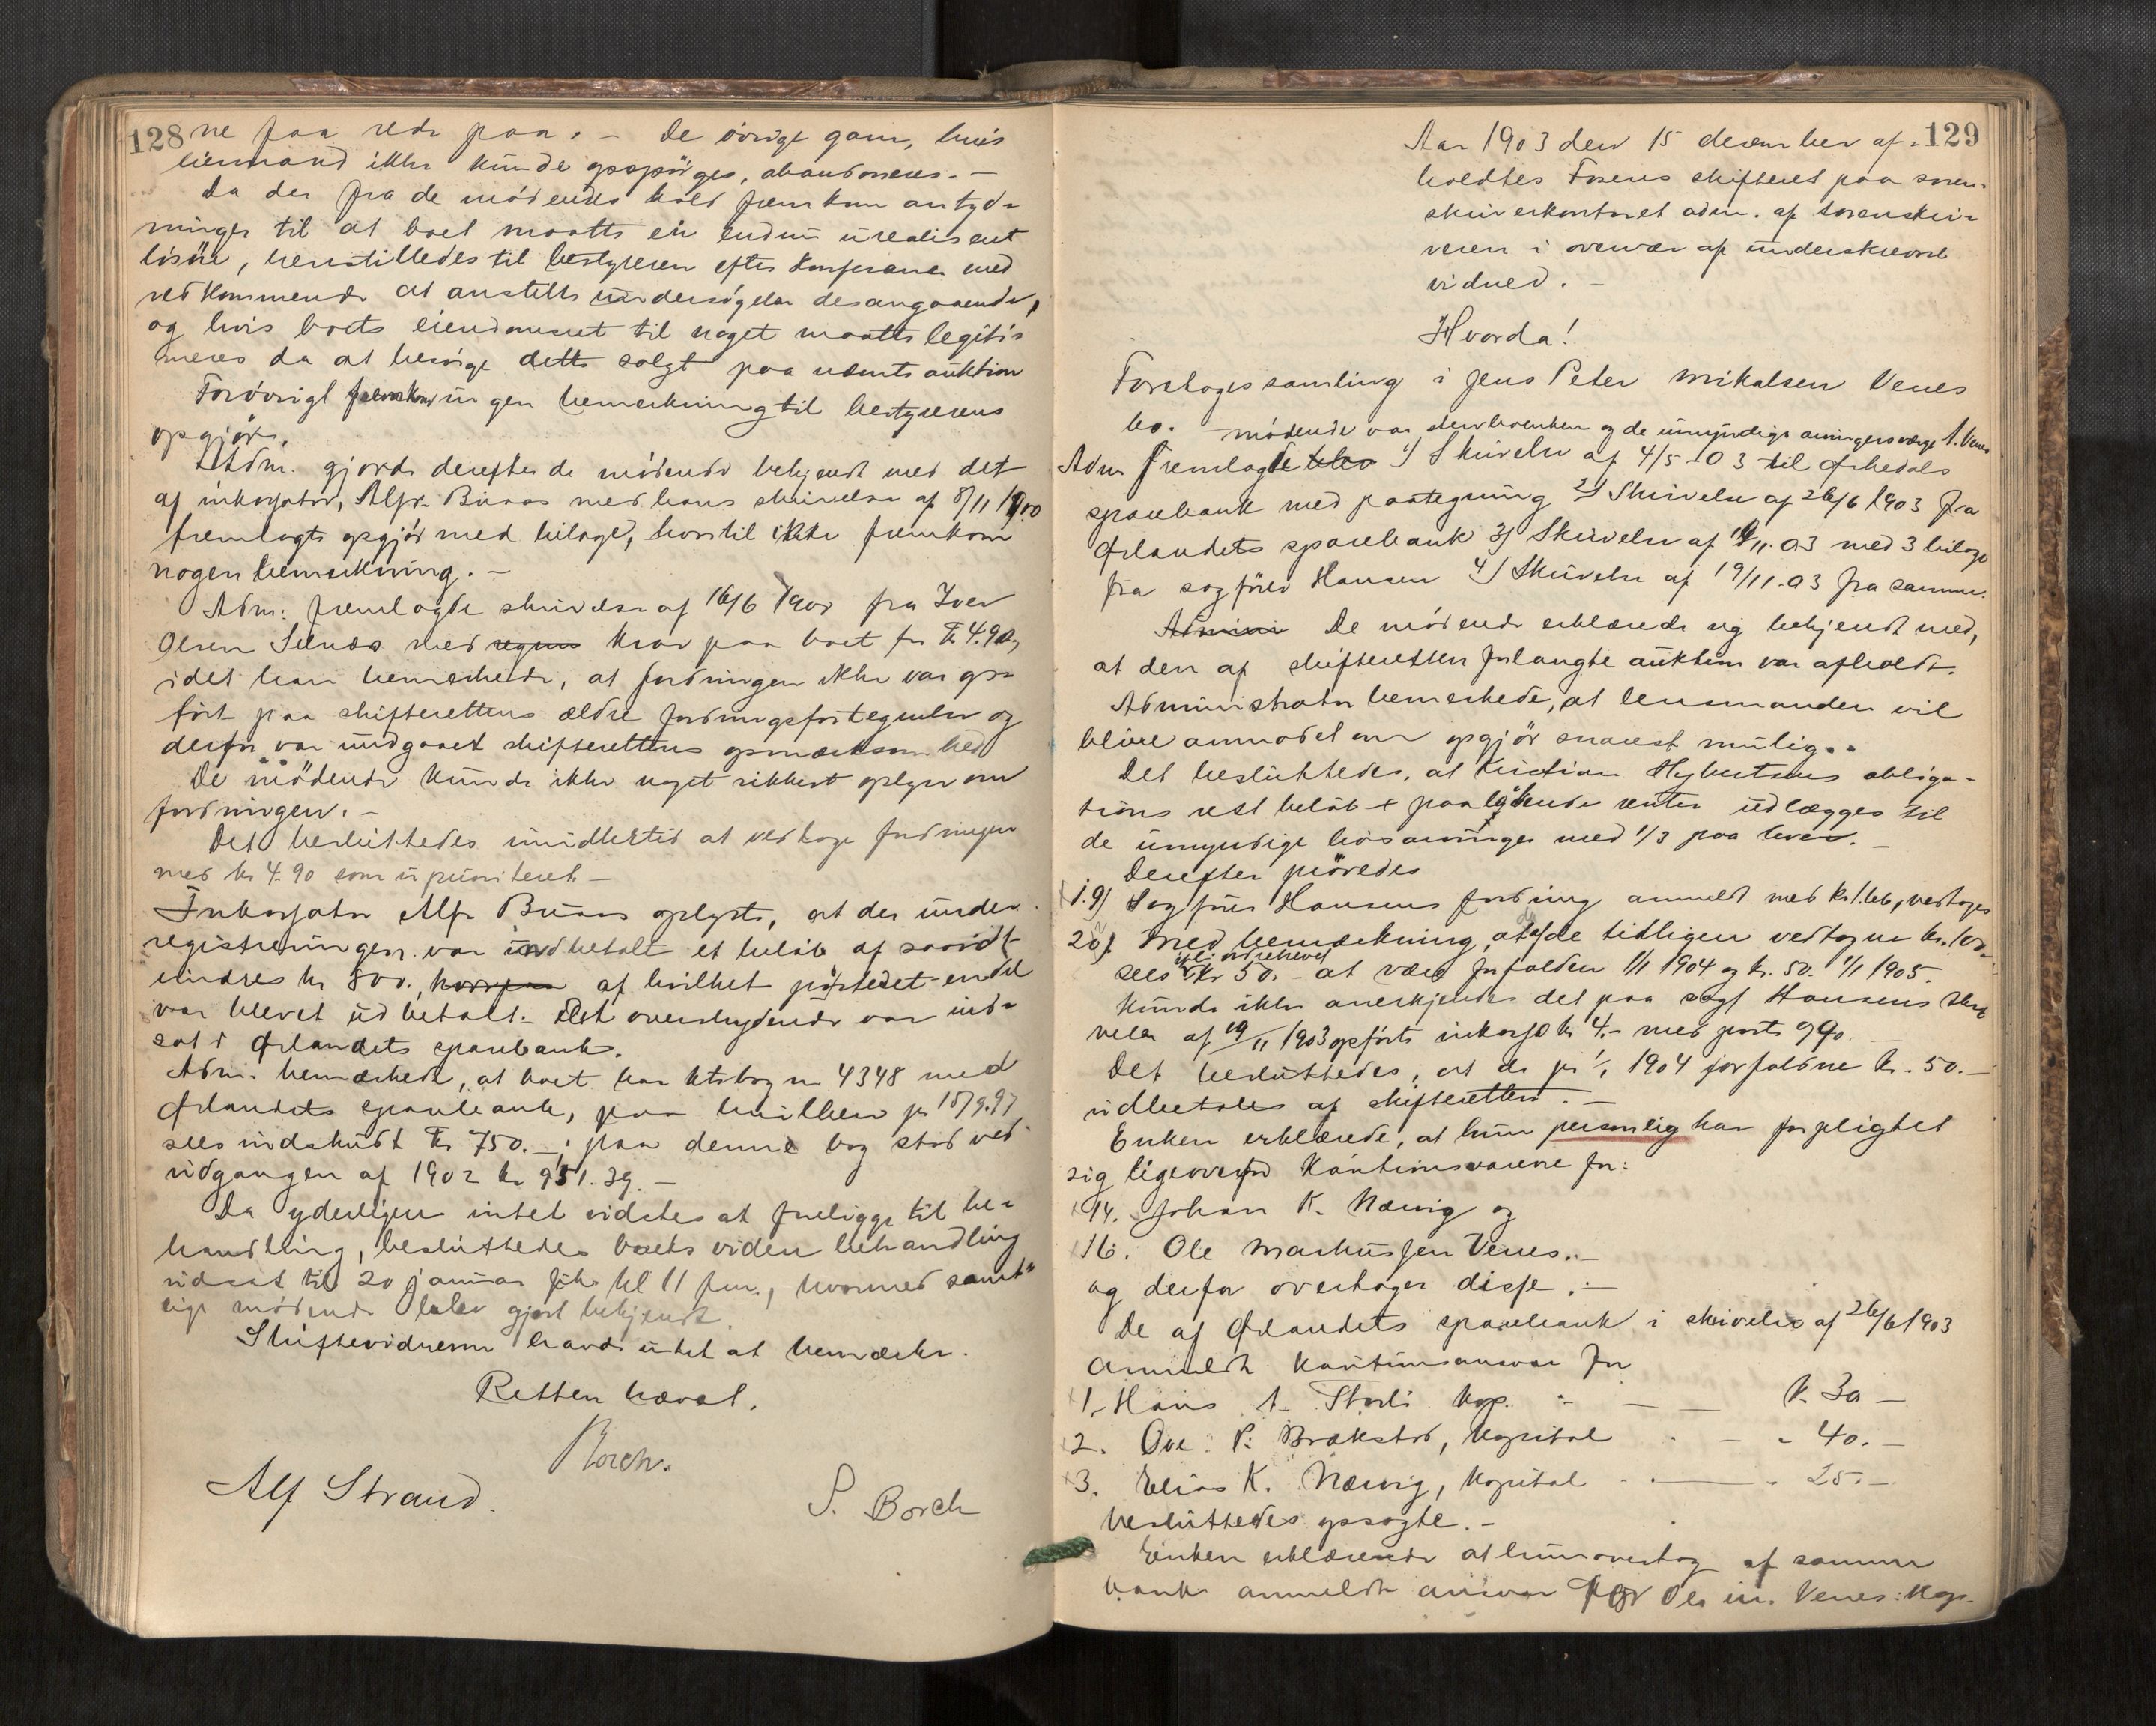 128
ne faa rede paa. – De övrige garn, hvis
eiermand ikke kunde opspörges, abandoneres. –
Da der fra de mödendes hold fremkom antyd-
ninger til at boet maatte eie endnu urealiseret
lösöre, henstilledes til bestyreren efter konferance med
vedkommende at anstille undersögelse desangaaende,
og hvis boets eiendomsret til noget maatte legiti-
meres da at besörge dette solgt paa nævnte auktion
Forövrigt fremkom ingen bemerkning til bestyrerens
opgjör.
Adm. gjorde derefter de mödende bekjendt med det
af inkassator, Alfr. Buaas med hans skrivelse af 8/11 1900
fremlagte opgjör med bilage, hvortil ikke fremkom
nogen bemerkning. –
Adm. fremlagde skrivelse af 16/6 1900 fra Iver
Olsen Selnæs med krav paa boet for Kr 4.90,
idet han bemerkede, at fordringen ikke var op-
fört paa skifterettens ældre fordringsfortegnelse og
derfor var undgaaet skifterettens opmærksomhed
De mödende kunde ikke noget sikkert oplyse om
fordringen. –
Det besluttedes imidlertid at vedtage fordringen
med kr 4.90 som uprioriteret –
Inkassator Alfr Buaas oplyste, at der under
registreringen var indbetalt et beløb af saavidt
erindres kr 800., af hvilket paastedet endel
var blevet udbetalt. Det overskydende var ind-
sat i Ørlandets sparebank.
Adm. bemærkede, at boet har ktrbog no 4348 med
Ørlandets sparebank, paa hvilken pr 18/9.97
sees indskudt Kr 750. – ; paa denne bog stod ved
udgangen af 1902 kr 951.39. –
Da yderligere intet vidstes at foreligge til be-
handling, besluttedes boets videre behandling
udsat til 20 januar f.k. kl 11 fm., hvormed samt-
lige mødende blev gjort bekjendt
Skiftevidnerne havde intet at bemærke.
Retten hævet.
Borch.
Alf Strand.
S. Borch
129
Aar 1903 den 15 december af-
holdtes Fosens skifteret paa soren-
skriverkontoret adm. af sorenskri-
veren i overvær af underskrevne
vidned. –
Hvorda!
Foretoges samling i Jens Peter Mikalsen Venes
bo. – mödende var sterbenken og de umyndige arvingers værge A. Venes
Adm fremlagde 1) Skrivelse af 4/5-03 til Ørkedals
sparebank med paategning 2) Skrivelse af 26/6 1903 fra
Ørlandets sparebank 3) Skrivelse af 19/11.03 med 3 bilage
fra sagförer Hansen 4) Skrivelse af 19/11.03 fra samme.
De mødende erklærede sig bekjendt med,
at den af skifteretten forlangte auktion var afholdt.
Administrator bemerkede, at lensmanden vil
blive anmodet om opgjør snarest mulig.
Det besluttedes, at Kristian Hybertsens obliga-
tions restbeløb + paalöbende renter udlægges til
de umyndige hos arvinger med 1/3 paa hver. –
Derefter prövedes
1.9) Sagfører Hansens fordring anmeldt med kr. , vedtoges
20). Med bemærkning, at af de tidligere vedtagne kr. 100
sees kr 50. – at være forfalden 1/1 1904 og kr. 50. 1/1 1905.
Kunde ikke anerkjendes det paa sagf Hansens skri-
velse af 19/11 1903 opförte inkasso kr 4. – med porto 90.
Det besluttedes, at de pr 1/1 1904 forfaldne kr. 50. –
udbetales af skifteretten. –
Enken erklærede, at hun personlig har forpligtet
sig ligeoverfor kautionsvarene for:
14. Johan K. Nævig og
16. Ole Markussen Venes. –
og derfor overtager disse. –
De af Ørlandets sparebank i skrivelse af 26/6 1903
anmeldte kautionsansvar for
1. Hans A. Storli kap. – – – k. 30 –
2. Ove P. Brækstad, kapital – – 40. –
3. Elias K. Nævig, kapital – – 25. –
besluttedes opsagte. –
Enken erklærede at hun overtog af samme
bank anmeldte ansvar for Ole M. Venes: kap.